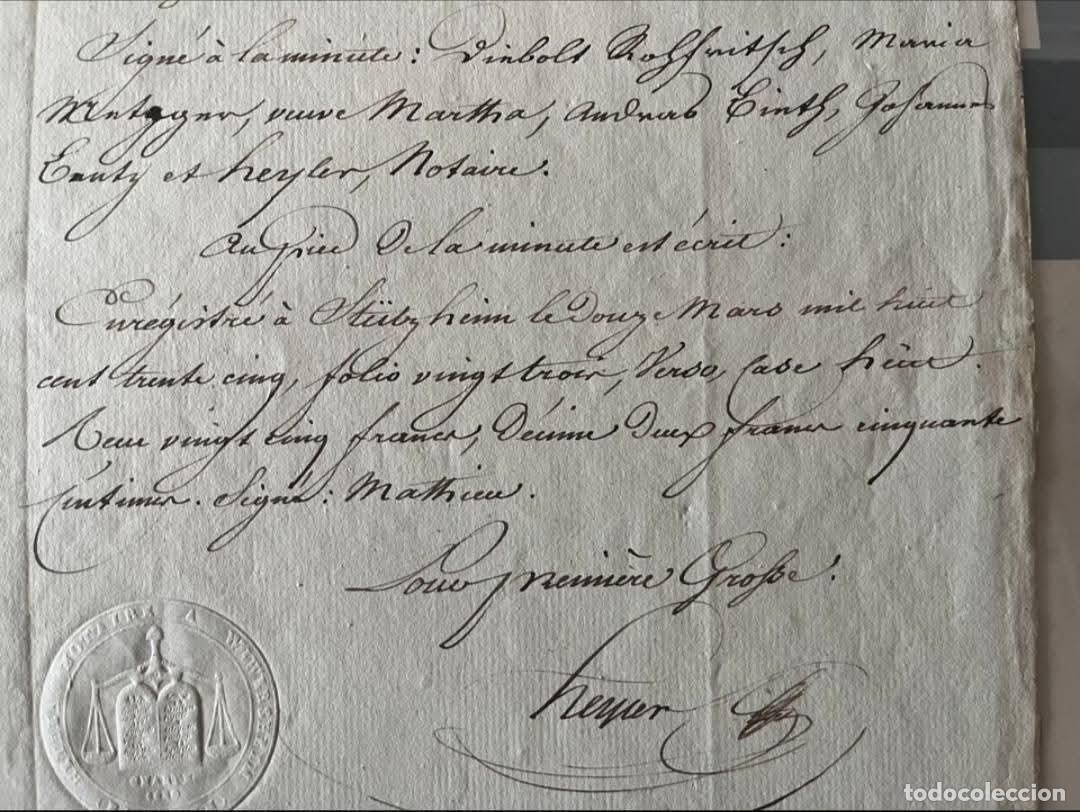 Signé à la minute: Diebolt Rohfritsch, Maria
Metzger, veuve Martha, Andreas Lieth, Johannes
Lentz et heyler, Notaire.
Au pied de la minute est écrit:
Enrégistré à Stützheim le Douze Mars mil huit
cent trente cinq, folio vingt trois, Verso, Case huit.
Reçu vingt cinq francs, Décime Deux francs cinquante
Centimes. Signé: Mathieu.
Pour première Grosse.
heyler
NOTAIRE A
todocoleccion